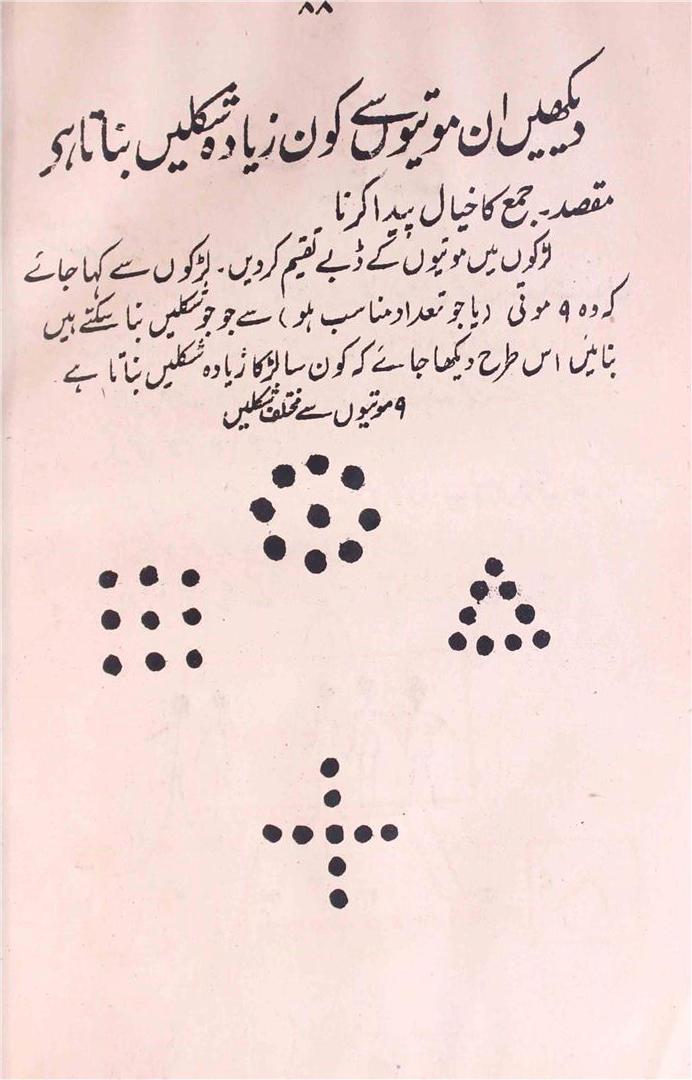 ۸۸
دیکھیں ان موتیوں سے کون زیادہ شکلیں بناتا ہے
مقصد۔ جمع کا خیال پیدا کرنا
لڑکوں میں موتیوں کے ڈبے تقیم کر دیں۔ لڑکوں سے کہا جائے
کہ وہ ۹ موتی (یا جو تعداد مناسب ہو) سے جو جو شکلیں بنا سکتے ہیں
بنائیں اس طرح دیکھا جائے کہ کون سا لڑکا زیادہ شکلیں بناتا ہے
۹ موتیوں سے مختلف شکلیں